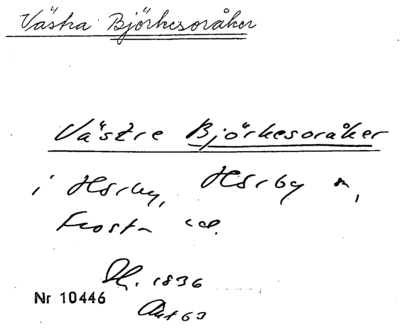 Västra Björkesoråker
Västre Björkesoråker
i Hörby, Hörby sn,
Frosta hd.
1836
Nr 10446
Akt 63